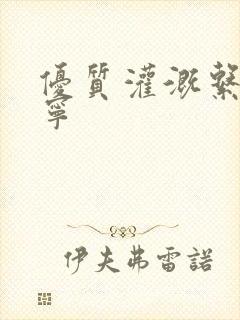 優質灌溉繫
寧
伊夫弗雷諾